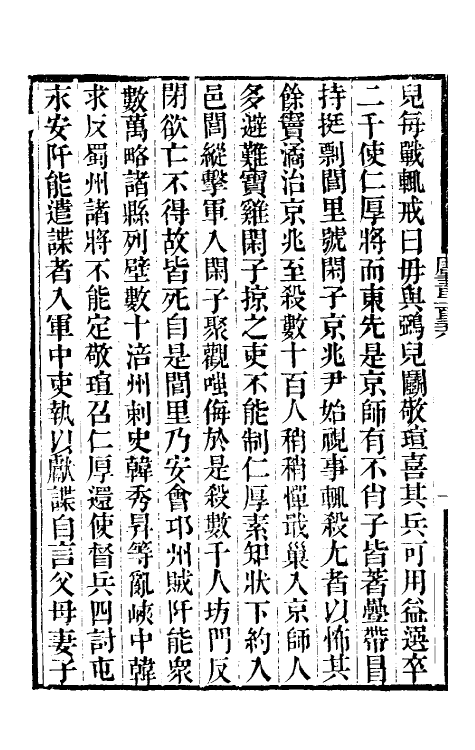 兒每戰輒戒曰毋與鵶兒鬬敬瑄喜其兵可用益選卒
二千使仁厚將而東先是京師有不肖子皆著疊帶冒
持挺剽閭里號閑子京兆尹始視事輒殺尤者以怖其
餘竇潏治京兆至殺數十百人稍稍憚戢巢入京師人
多避難寶雞閑子掠之吏不能制仁厚素知狀下約入
邑閭縱擊軍入閑子聚觀嗤侮於是殺數千人坊門反
閉欲亡不得故皆死自是閭里乃安會邛州賊阡能衆
數萬略諸縣列壁數十涪州刺史韓秀昇等亂峽中韓
求反蜀州諸將不能定敬瑄召仁厚還使督兵四討屯
永安阡能遣諜者入軍中吏執以獻諜自言父母妻子